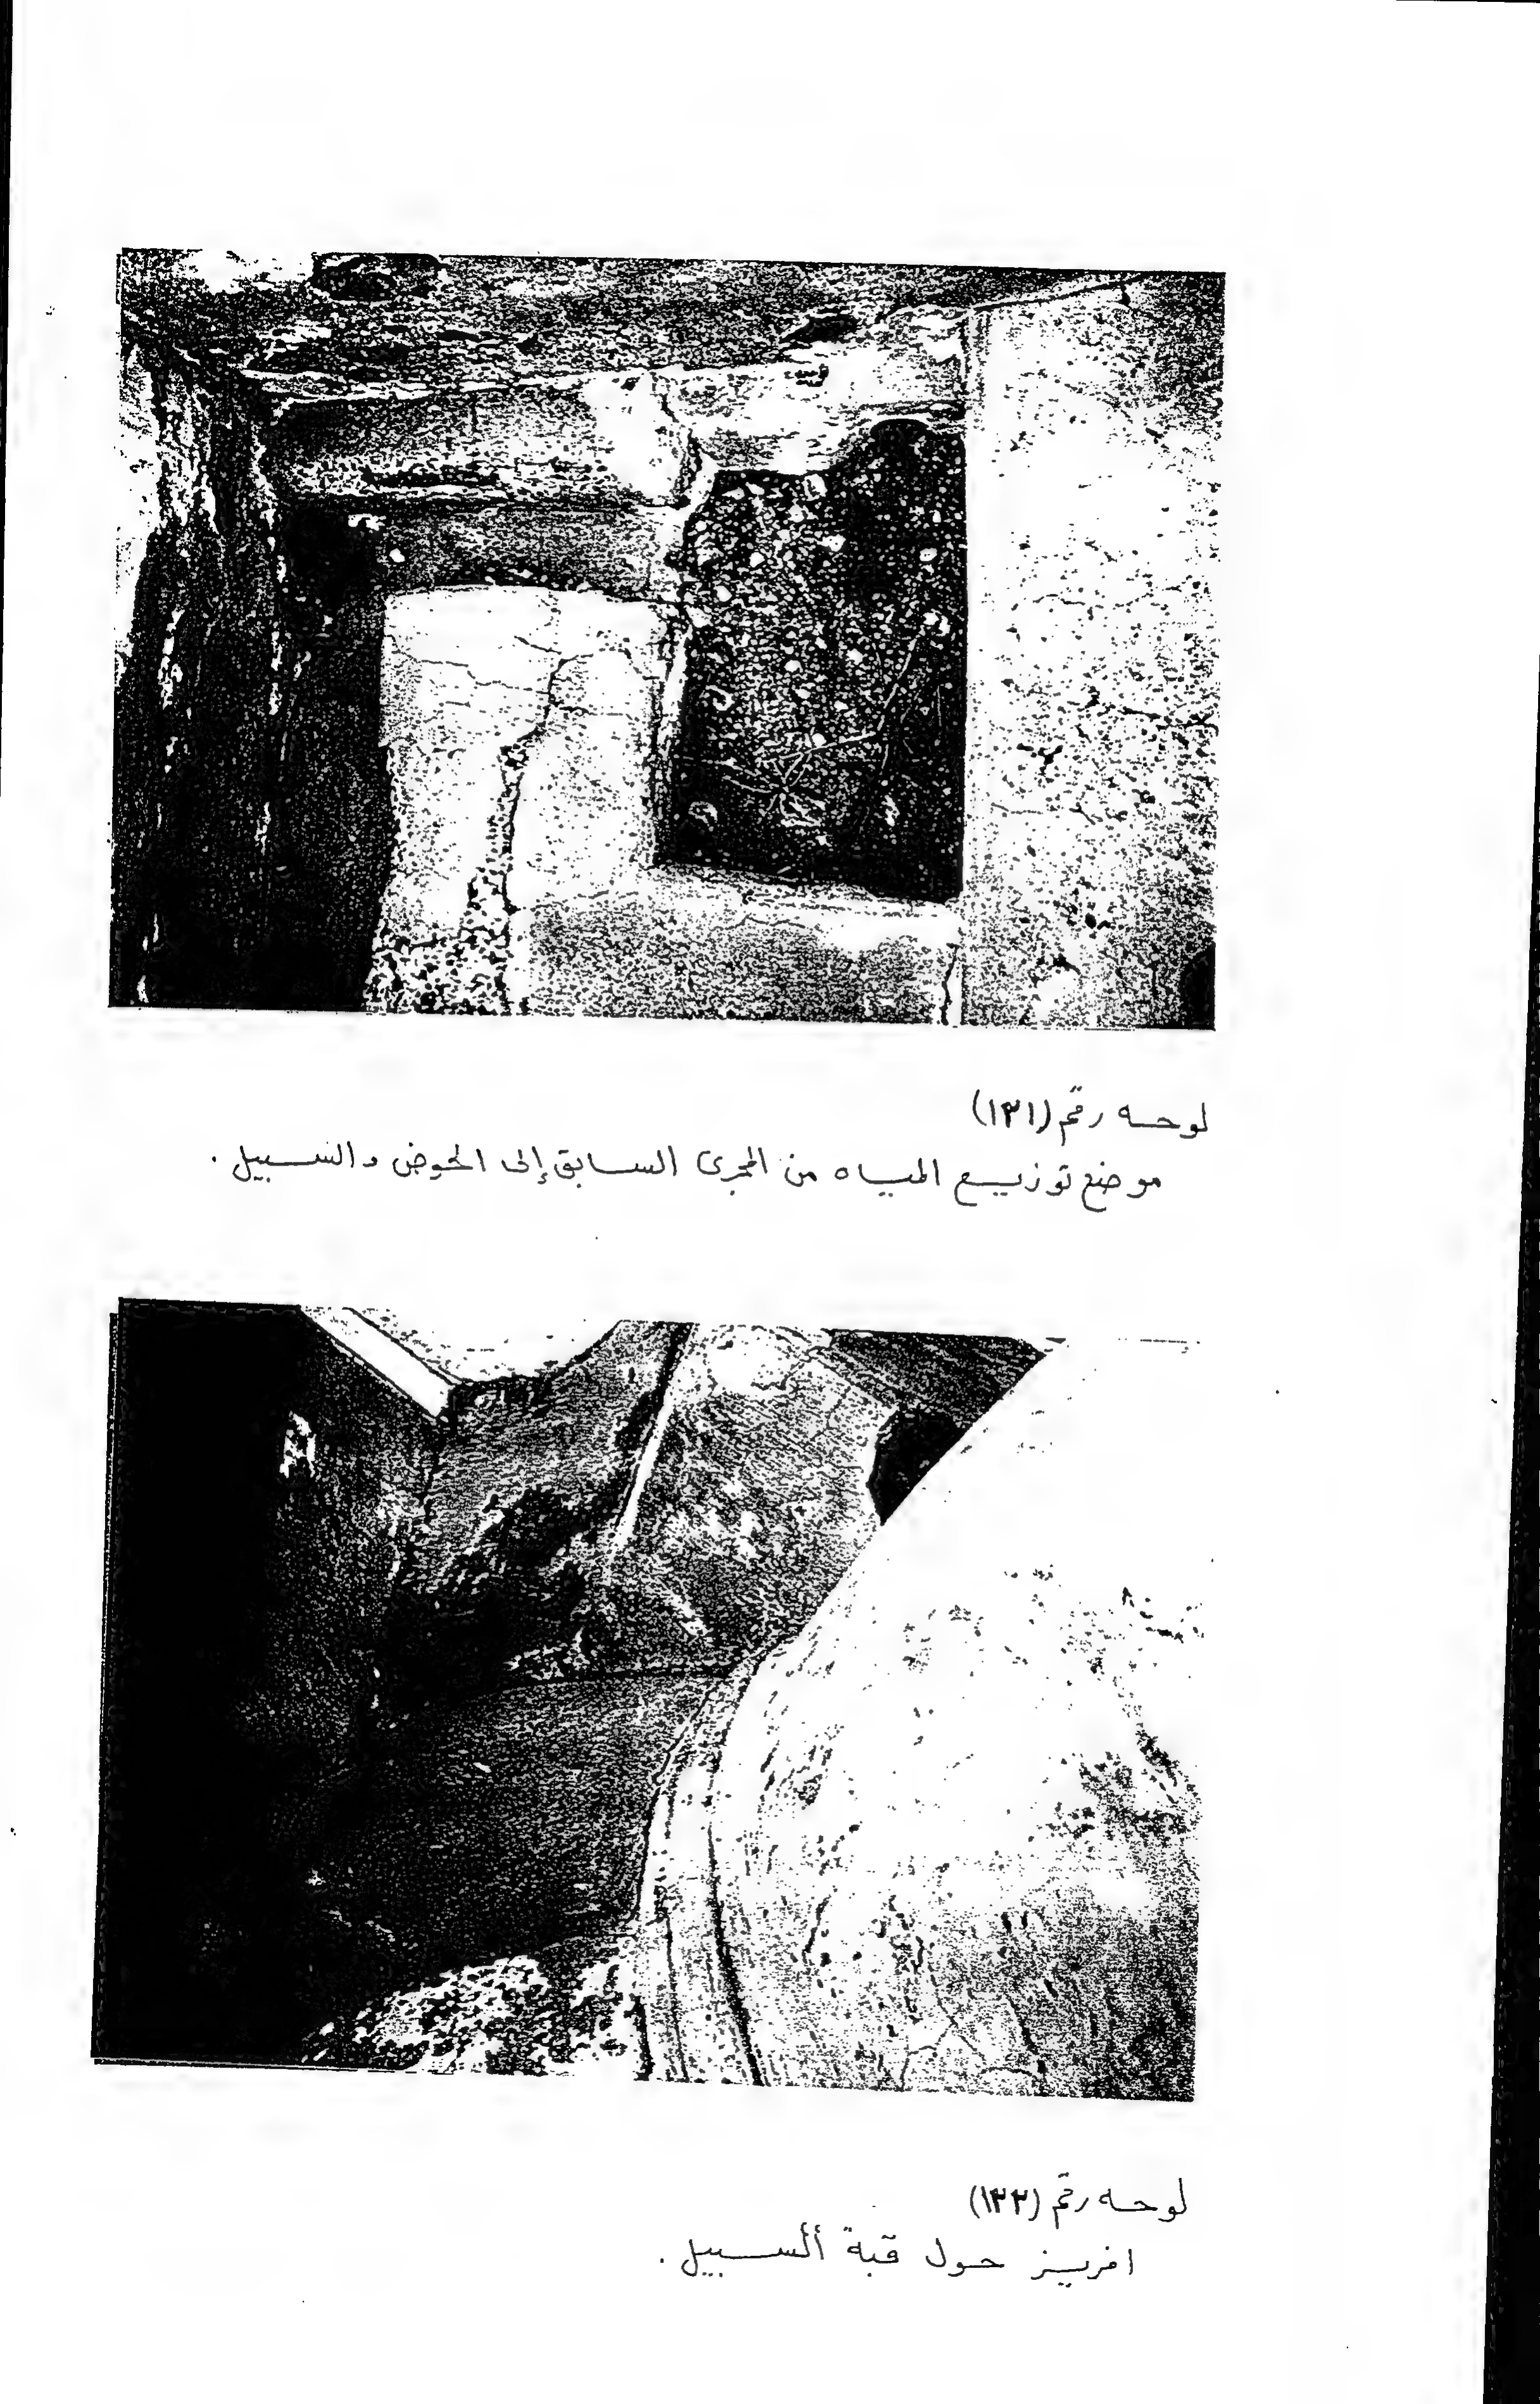 لوحه رقم (١٣١)
موضع توزيع المياه من المجرى السابق إلى الحوض والسبيل .
لوحه رقم (١٣٢)
افريز حول قبة السبيل .